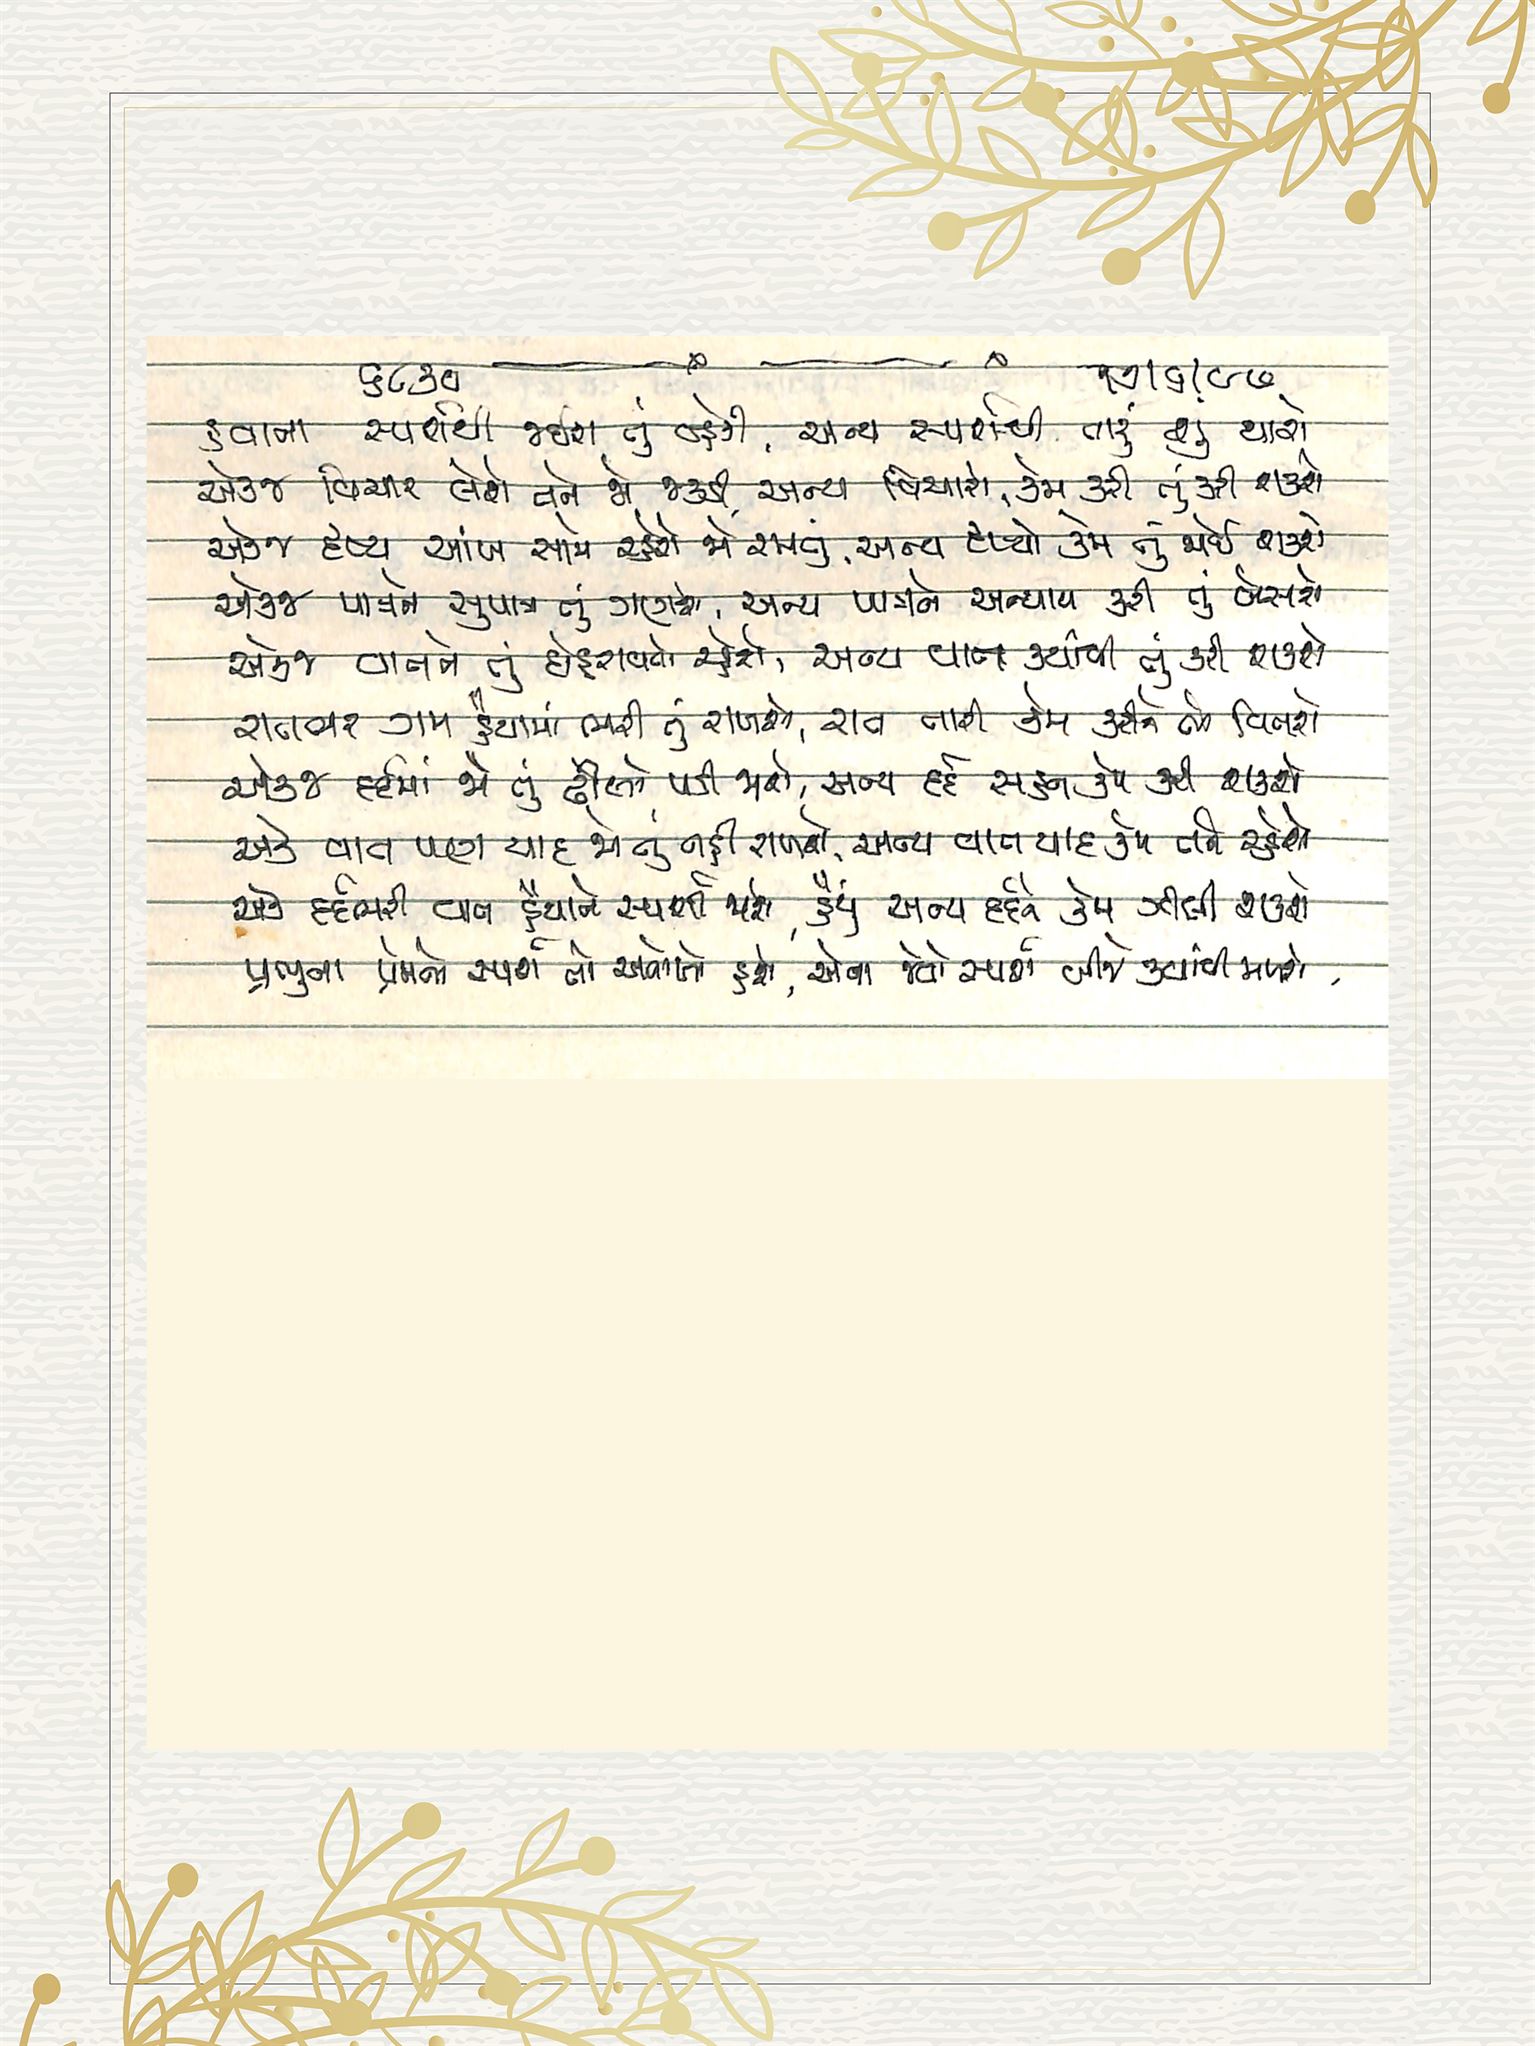 ૬૮૩૦ ૨૭/૬/૮૭
હવાના સ્પર્શથી જ્યારે તું બહેકે, અન્ય સ્પર્શથી તારું શું થાશે
એકજ વિચાર લેશે તને જો જકડી, અન્ય વિચારો, કેમ કરી તું કરી શકશે
એકજ દૃષ્ય આંખ સામે રહેશે જો રમતું, અન્ય દૃષ્યો કેમ તું જોઈ શકશે
એકજ પાત્રને સુપાત્ર તું ગણશે, અન્ય પાત્રને અન્યાય કરી તું બેસશે
એકજ વાતને તું દોહરાવતો રહેશે, અન્ય વાત ક્યાંથી તું કરી શકશે
રાતભર ગમ હૈયામાં ભરી તું રાખશે, રાત તારી કેમ કરીને તો વિતશે
એકજ દર્દમાં જો તું ઢીલો પડી જાશે, અન્ય દર્દ સહન કેમ કરી શકશે
એકે વાત પણ યાદ જો તું નહી રાખશે, અન્ય વાત યાદ કેમ તને રહેશે
એકે દર્દભરી વાત હૈયાને સ્પર્શી જાશે, હૈયું અન્ય દર્દને કેમ ઝીલી શકશે
પ્રભુના પ્રેમનો સ્પર્શ તો અનોખો હશે, એના જેવો સ્પર્શ બીજે ક્યાંથી મળશે.